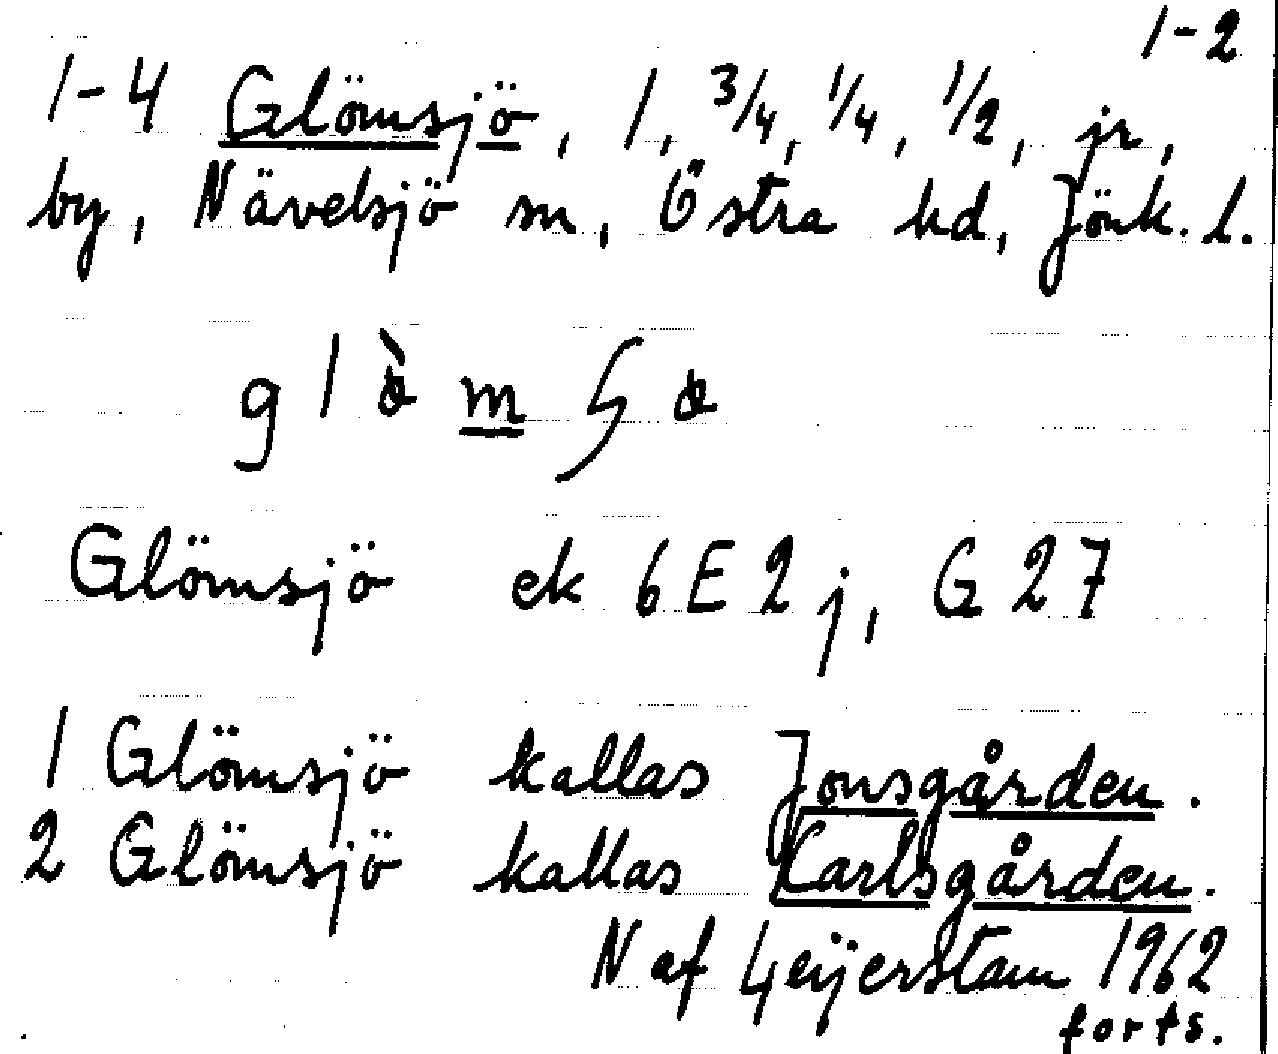 1-2
1-4 Glömsjö, 1, 3/4, 1/4, 1/2, jr,
by, Nävelsjö sn, Östra hd, Jönk. l.
Glömsjö ek 6E2j, G27
1 Glömsjö kallas Jonsgården.
2 Glömsjö kallas Karlsgården.
N af Geijerstam 1962
forts.